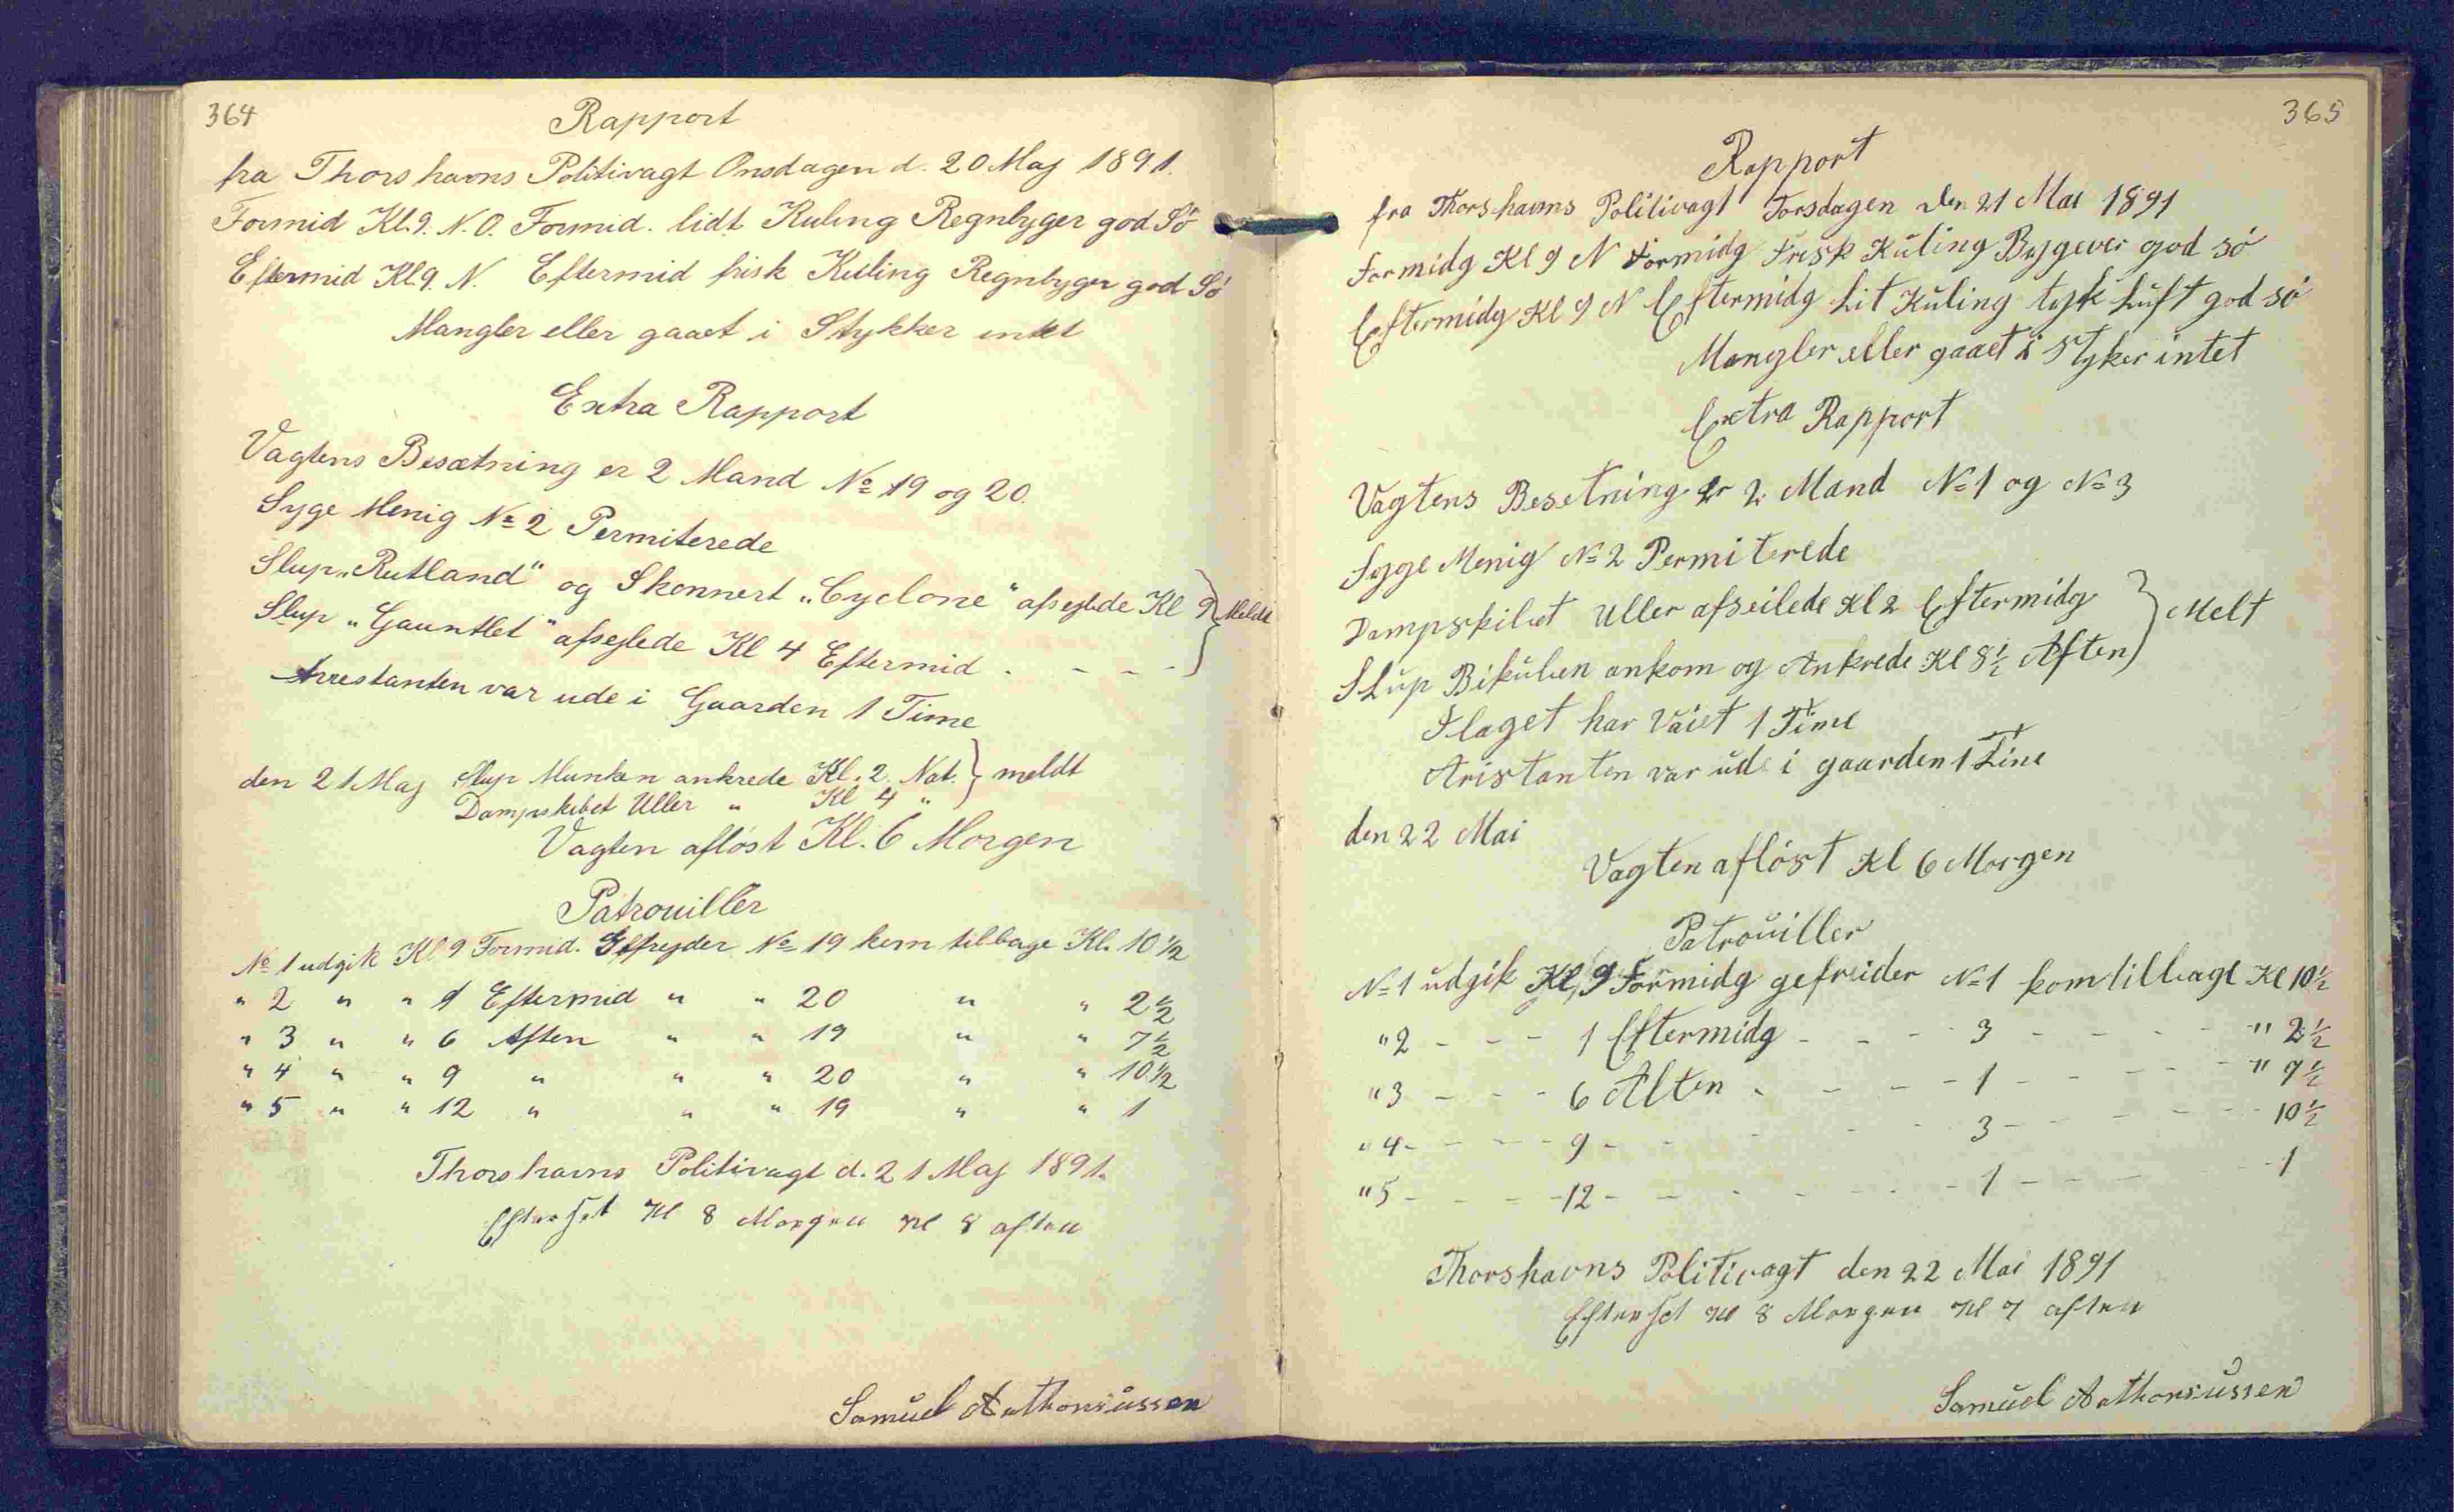 364
Rapport
fra Thorshavns Politivagt Onsdagen d. 20 Maj 1891.
Formid Kl. 9. N.O. Formid. lidt Kuling Regnbyger god Sö
Eftermid Kl. 9. N. Eftermid frisk Kuling Regnbyger god Sö
Mangler eller gaaet i Stykker intet
Extra Rapport
Vagtens Besætning er 2 Mand No 19 og 20.
Syge Menig No 2 Permiterede
Slup „Rutland" og Skonnert „Cyclone" afsejlede Kl 9 } Meldt
Slup „Gauntlet" afsejlede Kl 4 Eftermid . - - -
Arrestanten var ude i Gaarden 1 Time
den 21 Maj Slup Munken ankrede Kl. 2. Nat. } meldt
Dampskibet Uller " Kl 4 "
Vagten afløst Kl. 6 Morgen
Patrouiller
No 1 udgik Kl 9 Formid. Gefrejder No 19 kom tilbage Kl. 10 ½
" 2 " " 1 Eftermid " " 20 " " 2½
" 3 " " 6 Aften " " 19 " " 7½
" 4 " " 9 " " " 20 " " 10½
" 5 " " 12 " " " 19 " " 1
Thorshavns Politivagt d. 21 Maj 1891.
Efterset Kl 8 Morgen Kl 8 aften
Samuel Anthoniussen
365
Rapport
fra Thorshavns Politivagt Torsdagen den 21 Mai 1891
Formidg Kl 9 N Formidg Frisk Kuling Bygever god sö
Eftermidg Kl 9 N Eftermidg Lit Kuling tyk Luft god sö
Mangler eller gaaet i Styker intet
Extra Rapport
Vagtens Besetning er 2 Mand No 1 og No 3
Syge Menig No 2 Permiterede
Dampskibet Uller afseilede Kl 2 Eftermidg } Melt
Slup Bikuben ankom og Ankrede Kl 8½ Aften
Flaget har Vaiet 1 Time
Aristanten var ude i gaarden 1 Time
den 22 Mai
Vagten afløst Kl 6 Morgen
Patrouiller
No 1 udgik Kl, 9 Formidg gefreider No 1 kom tilbage Kl 10½
" 2 - - - 1 Eftermidg - - - 3 - - - - " 2½
" 3 - - - 6 Aften - - - - 1 - - - - " 7½
" 4 - - - - 9 - - - - - 3 - - - - - 10½
" 5 - - - - 12 - - - - - - 1 - - - - - 1
Thorshavns Politivagt den 22 Mai 1891
Efterset Kl 8 Morgen Kl 7 aften
Samuel Anthoniussen